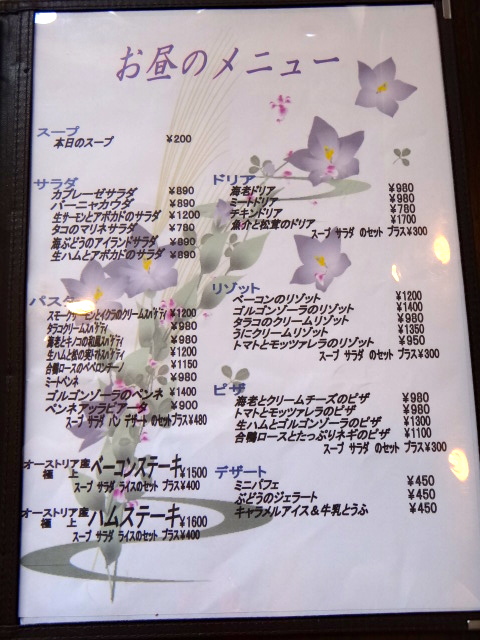 お昼のメニュー
スープ
本日のスープ ¥200
サラダ
カプレーゼサラダ ¥890
バーニャカウダ ¥890
生サーモンとアボカドのサラダ ¥1200
タコのマリネサラダ ¥780
海ぶどうのアイランドサラダ ¥890
生ハムとアボカドのサラダ ¥890
パスタ
スモークサーモンとイクラのクリームスパゲティ ¥1200
タラコクリームスパゲティ ¥980
海老とキノコの和風スパゲティ ¥980
生ハムと松の実トマトスパゲティ ¥1200
合鴨ロースのペペロンチーノ ¥1150
ミートペンネ ¥980
ゴルゴンゾーラのペンネ ¥1400
ペンネアッラビアータ ¥900
スープ サラダ パン デザート のセットプラス¥480
オーストリア産 極上 ベーコンステーキ ¥1500
スープ サラダ ライスのセット プラス¥400
オーストリア産 極上 ハムステーキ ¥1600
スープ サラダ ライスのセット プラス¥400
ドリア
海老ドリア ¥980
ミートドリア ¥980
チキンドリア ¥780
魚介と松茸のドリア ¥1700
スープ サラダ のセット プラス¥300
リゾット
ベーコンのリゾット ¥1200
ゴルゴンゾーラのリゾット ¥1400
タラコのクリームリゾット ¥980
うにクリームリゾット ¥1350
トマトとモッツァレラのリゾット ¥950
スープ サラダ のセット プラス¥300
ピザ
海老とクリームチーズのピザ ¥980
トマトとモッツァレラのピザ ¥980
生ハムとゴルゴンゾーラのピザ ¥1300
合鴨ロースとたっぷりネギのピザ ¥1100
スープ サラダ のセット プラス¥300
デザート
ミニパフェ ¥450
ぶどうのジェラート ¥450
キャラメルアイス&牛乳とうふ ¥450